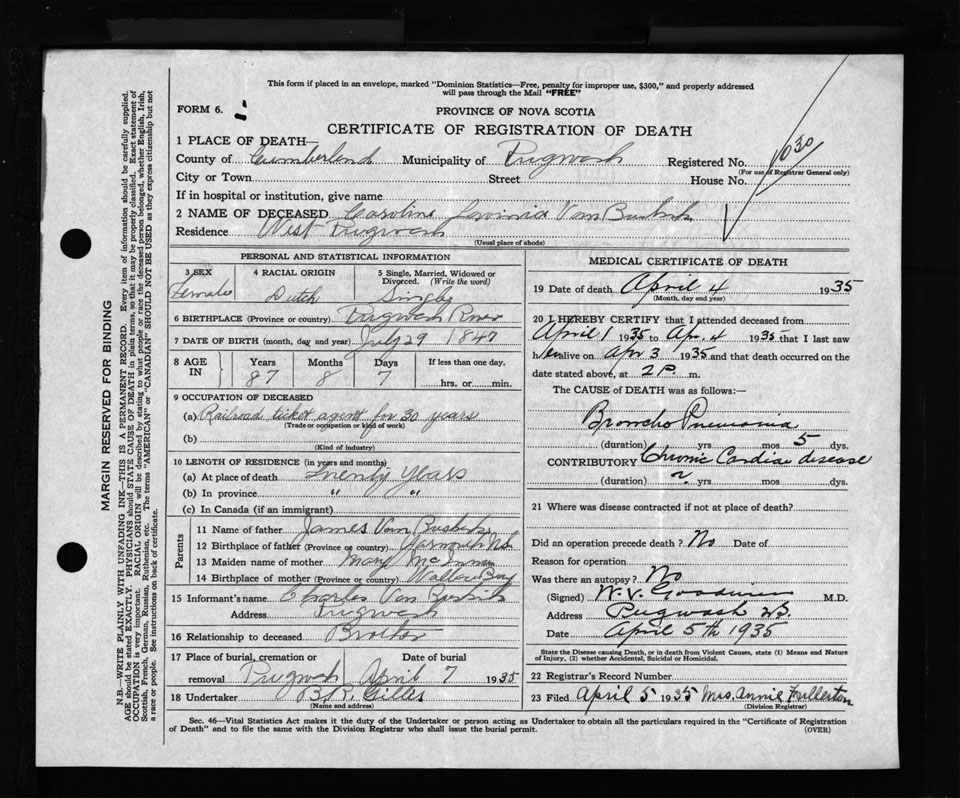 This form if placed in an envelope, marked "Dominion Statistics—Free, penalty for improper use, $300," and properly addressed
will pass through the Mail "FREE"
FORM 6.
PROVINCE OF NOVA SCOTIA
CERTIFICATE OF REGISTRATION OF DEATH
1 PLACE OF DEATH—
County of Cumberland Municipality of Pugwash Registered No. 1030
(For use of Registrar General only)
City or Town Street House No.
If in hospital or institution, give name
2 NAME OF DECEASED Caroline Lavinia Van Buskirk
Residence West Pugwash
(Usual place of abode)
PERSONAL AND STATISTICAL INFORMATION
3 SEX 4 RACIAL ORIGIN 5 Single, Married, Widowed or
Divorced. (Write the word)
Female Dutch Single
6 BIRTHPLACE (Province or country) Pugwash River
7 DATE OF BIRTH (month, day and year) July 29 1847
8 AGE IN Years Months Days If less than one day,
87 8 7 hrs. or min.
9 OCCUPATION OF DECEASED
(a) Railroad ticket agent for 30 years
(Trade or occupation or kind of work)
(b)
(Kind of industry)
10 LENGTH OF RESIDENCE (in years and months)
(a) At place of death Twenty Years
(b) In province " "
(c) In Canada (if an immigrant)
Parents
11 Name of father James Van Buskirk
12 Birthplace of father (Province or country) Yarmouth NS
13 Maiden name of mother Mary
14 Birthplace of mother (Province or country) Wallace Bay
15 Informant's name Charles Van Buskirk
Address Pugwash
16 Relationship to deceased Brother
17 Place of burial, cremation or Date of burial
removal Pugwash April 7 1935
18 Undertaker B.R. Gillis
(Name and address)
MEDICAL CERTIFICATE OF DEATH
19 Date of death April 4 1935
(Month, day and year)
20 I HEREBY CERTIFY that I attended deceased from
April 1 1935 to Ap. 4 1935 and that I last saw
her alive on Apr 3 1935 and that death occurred on the
date stated above, at 2 P. m.
The CAUSE OF DEATH was as follows:—
Broncho Pneumonia
(duration) yrs mos 5 dys.
CONTRIBUTORY Chronic Cardiac disease
(duration) yrs. mos. dys.
21 Where was disease contracted if not at place of death?
Did an operation precede death? No Date of
Reason for operation
Was there an autopsy? No
(Signed) W.V. Goodwin M.D.
Address Pugwash N.S.
Date April 5th 1935
State the Disease causing Death, or in death from Violent Causes, state (1) Means and Nature
of Injury, (2) whether Accidental, Suicidal or Homicidal.
22 Registrar's Record Number
23 Filed April 5 1935 Mrs. Annie Fullerton
(Division Registrar)
Sec. 46—Vital Statistics Act makes it the duty of the Undertaker or person acting as Undertaker to obtain all the particulars required in the "Certificate of Registration
of Death" and to file the same with the Division Registrar who shall issue the burial permit. (OVER)
MARGIN RESERVED FOR BINDING
N.B.—WRITE PLAINLY WITH UNFADING INK—THIS IS A PERMANENT RECORD. Every item of information should be carefully supplied.
AGE should be stated EXACTLY. PHYSICIANS should STATE CAUSE OF DEATH in plain terms, so that it may be properly classified. Exact statement of
OCCUPATION is very important. RACIAL ORIGIN will be described by stating to what people or race the deceased person belonged, whether English, Irish,
Scottish, French, German, Russian, Ruthenian, etc. The terms "AMERICAN" or "CANADIAN" SHOULD NOT BE USED as they express citizenship but not
a race or people. See instructions on back of certificate.